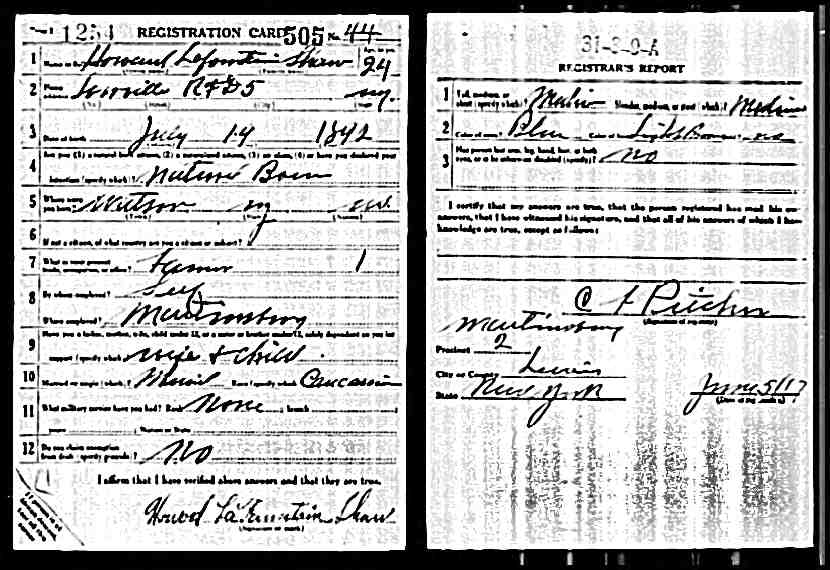 1254 REGISTRATION CARD 505 No. 44
1 Howard Lafountain Shaw Age, in yrs. 24
2 Lowville RFD5 NY.
3 Date of birth July 14 1892
4 Are you (1) a natural born citizen, (2) a naturalized citizen, (3) an alien, (4) or have you declared your
intention (specify which)? Natural Born
5 Where were you born? Watson NY
6 If not a citizen, of what country are you a citizen or subject?
7 What is your present trade, occupation, or office? Farmer 1
8 By whom employed? Self
Where employed? Martinsburg
9 Have you a father, mother, wife, child under 12, or a sister or brother under 12, solely dependent on you for
support (specify which)? wife & child
10 Married or single (which)? Married Race (specify which)? Caucasian
11 What military service have you had? Rank None ; branch
years ; Nation or State
12 Do you claim exemption from draft (specify grounds)? No
I affirm that I have verified above answers and that they are true.
Howard LaFountain Shaw
(Signature or mark)
31-3-9-A
REGISTRAR'S REPORT
1 Tall, medium, or short (specify which)? Medium Slender, medium, or stout (which)? Medium
2 Color of eyes? Blue Color of hair? Light Brown no
3 Has person lost arm, leg, hand, foot, or both eyes, or is he otherwise disabled (specify)? No
I certify that my answers are true, that the person registered has read his own
answers, that I have witnessed his signature, and that all of his answers of which I have
knowledge are true, except as follows:
(Signature of registrar)
Martinsburg
Precinct 2
City or County Lewis
State New York June 5/17
(Date of registration)